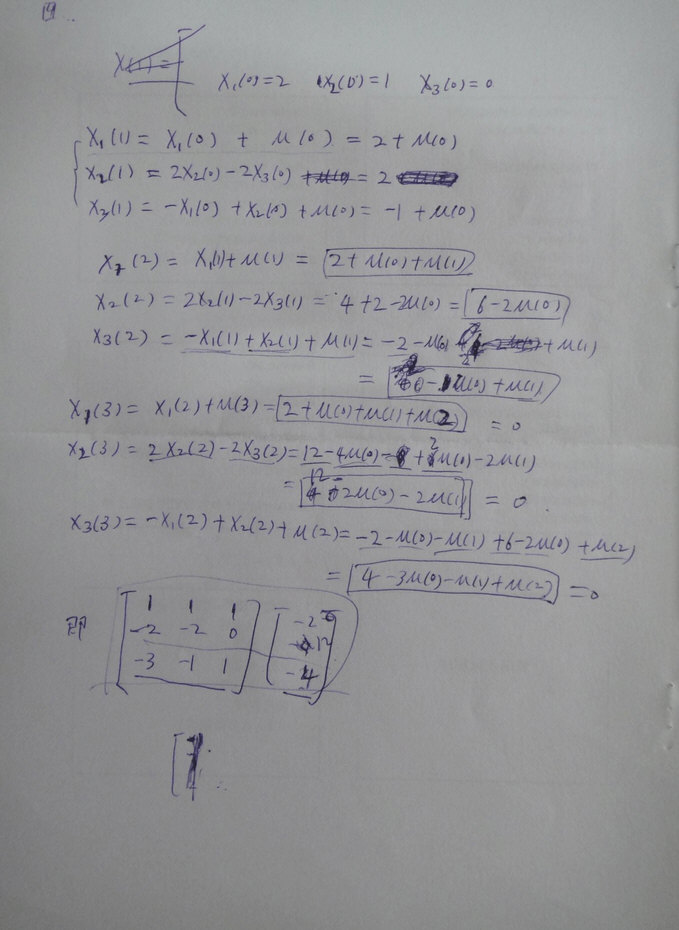 x₁(0)=2 x₂(0)=1 x₃(0)=0
x₁(1) = x₁(0) + u(0) = 2+u(0)
x₂(1) = 2x₂(0)-2x₃(0) = 2
x₃(1) = -x₁(0)+x₂(0)+u(0) = -1+u(0)
x₁(2) = x₁(1)+u(1) = 2+u(0)+u(1)
x₂(2) = 2x₂(1)-2x₃(1) = 4+2-2u(0) = 6-2u(0)
x₃(2) = -x₁(1)+x₂(1)+u(1) = -2-u(0) +u(1)
= u(0)+u(1)
x₁(3) = x₁(2)+u(3) = 2+u(0)+u(1)+u(2) = 0
x₂(3) = 2x₂(2)-2x₃(2) = 12-4u(0)- +2u(0)-2u(1)
= 12-2u(0)-2u(1) = 0
x₃(3) = -x₁(2)+x₂(2)+u(2) = -2-u(0)-u(1)+6-2u(0)+u(2)
= 4-3u(0)-u(1)+u(2) = 0
即
1 1 1 -2
-2 -2 0 12
-3 -1 1 -4